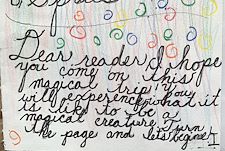 Dear reader I hope
you come on this
magical trip you
will experence what it
is like to be a
magical creature Turn
the page and let's begine!